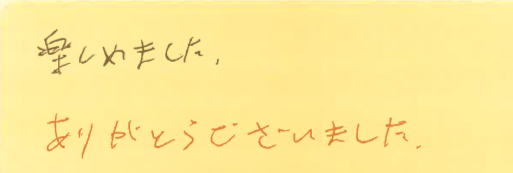 楽しめました。
ありがとうございました。